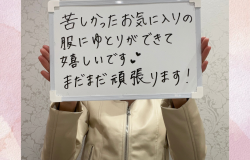 苦しかったお気に入りの
服にゆとりができて
嬉しいです♥
まだまだ頑張ります！